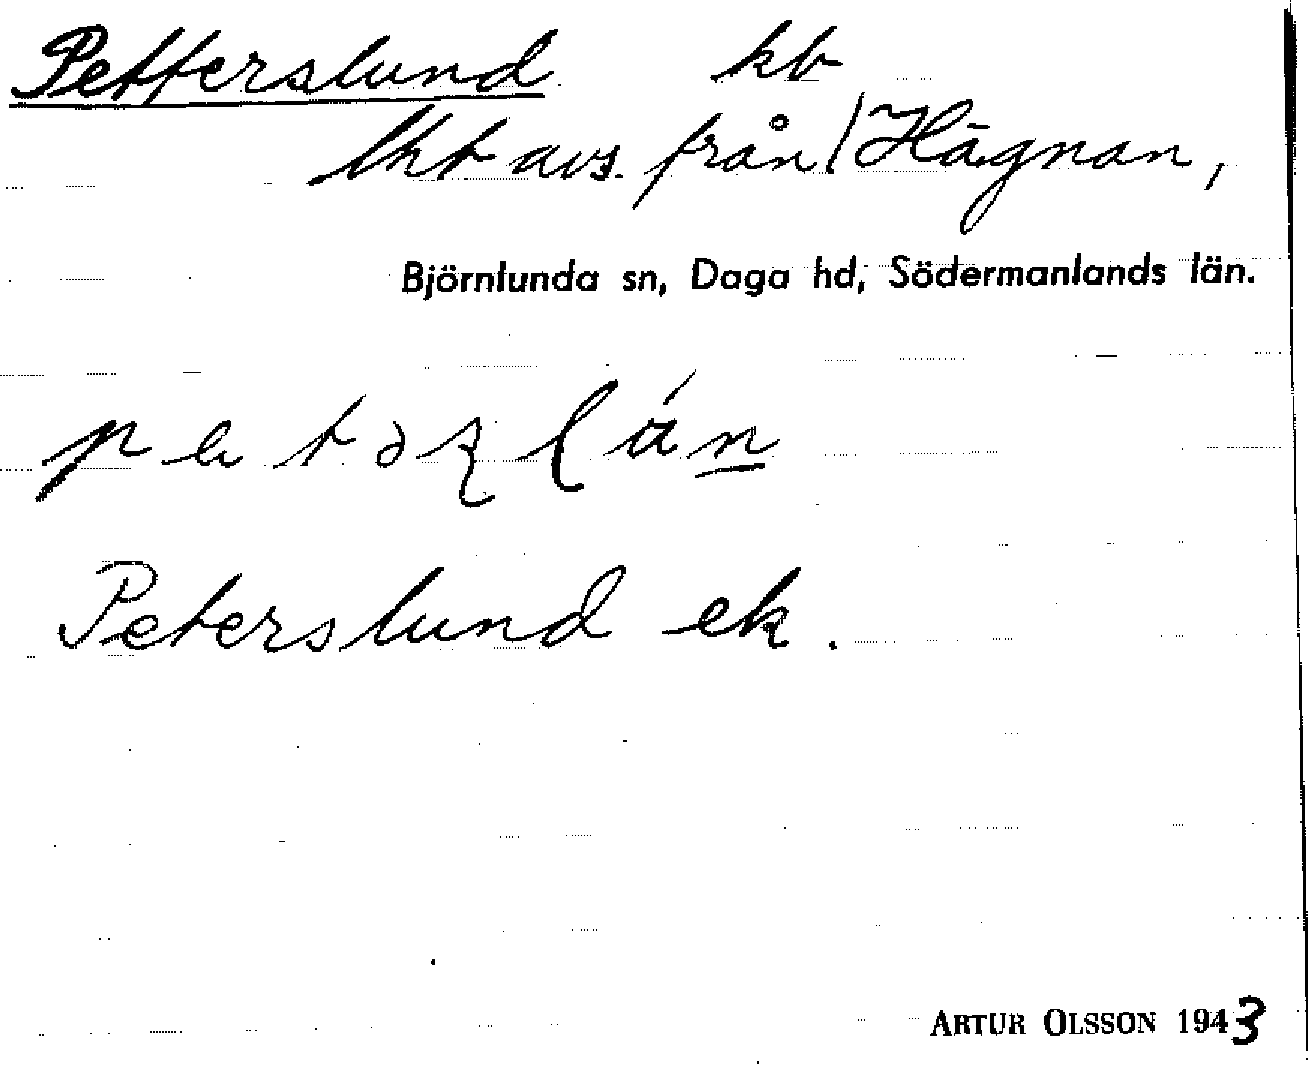 Petterslund kb
lht avs. från / Hägnan,
Björnlunda sn, Daga hd, Södermanlands län.
Peterslund ek.
ARTUR OLSSON 1943